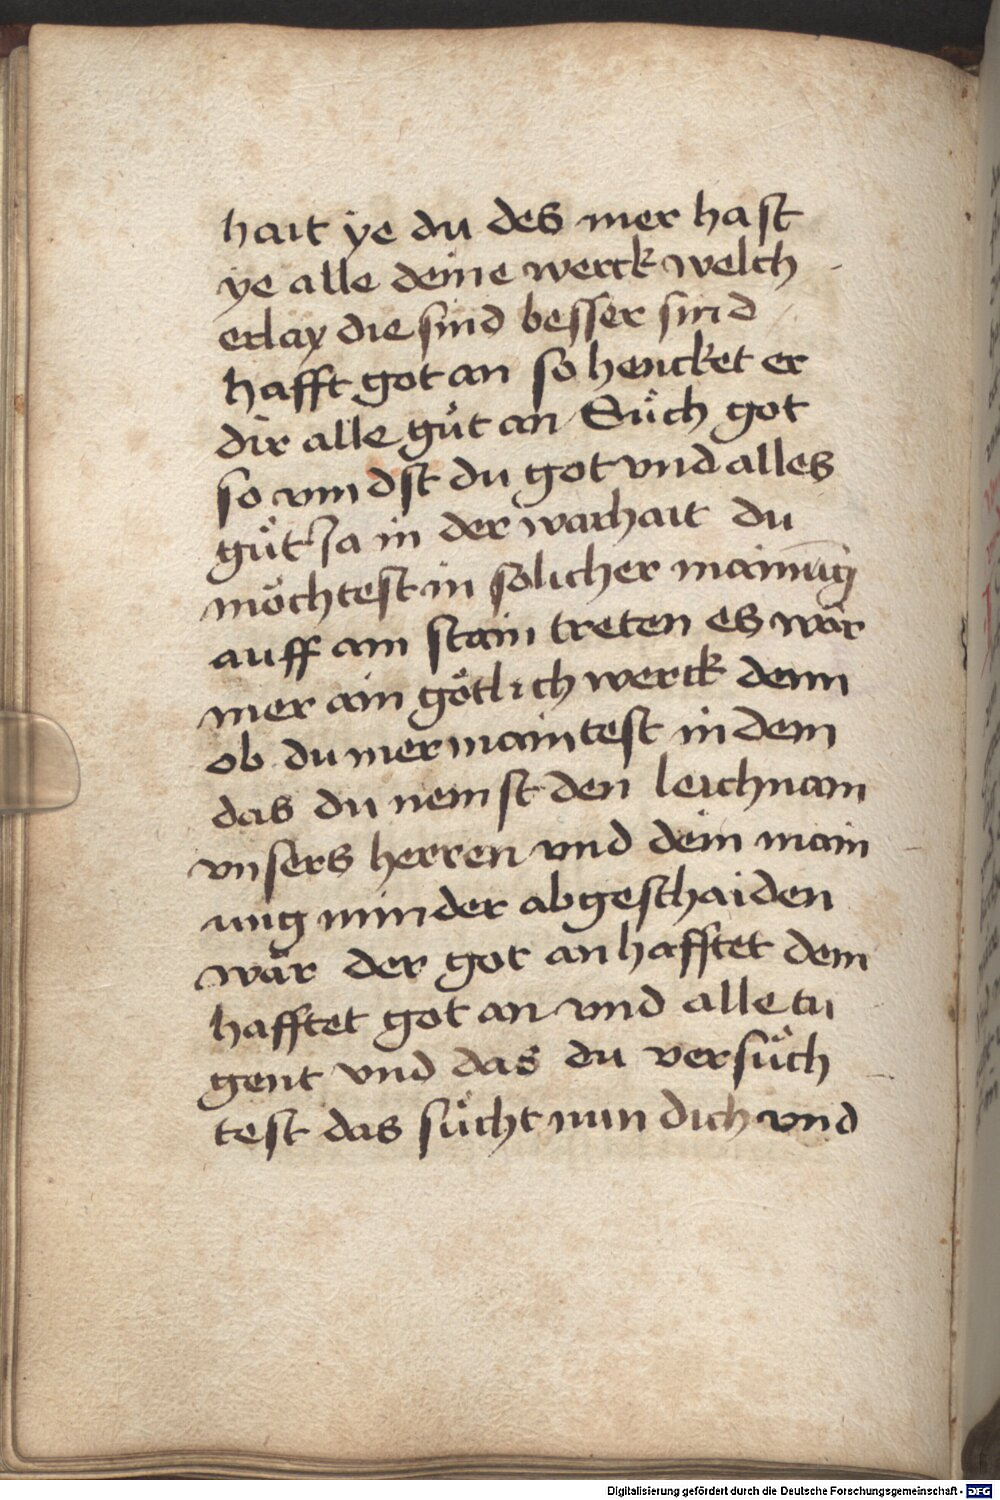 hait ye du des mer hast
ye alle deine werck welch
erlay die sind besser sind
hafft got an so hencket er
dir alle gůt an Sůch got
so vindst du got vnd alles
gůt Ja in der warhait du
möchtest in solicher mainūg
auff ain stain treten es wär
mer ain götlich werck denn
ob du mer maintest in dem
das du nemst den leichnam
vnsers herren vnd dein main
ung minder abgeschaiden
wär der got an hafftet dem
hafftet got an vnd alle tu
gent vnd das du versůch
test das sůcht nun dich vnd
Digitalisierung gefördert durch die Deutsche Forschungsgemeinschaft - DFG